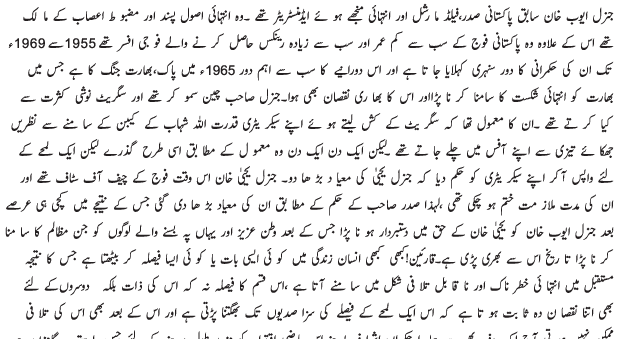 جنرل ایوب خان سابق پاکستانی صدر،فیلڈ ما رشل اور انتہائی منجھے ہو ئے ایڈمنسٹریٹر تھے ۔وہ انتہائی اصول پسند اور مضبو ط اعصاب کے ما لک
تھے اس کے علاوہ وہ پاکستانی فوج کے سب سے کم عمر اور سب سے زیادہ رینکس حاصل کر نے والے فو جی افسر تھے 1955سے 1969ء
تک ان کی حکمرانی کا دور سنہری کہلایا جا تا ہے اور اس دورانیے کا سب سے اہم دور 1965ء میں پاک،بھارت جنگ کا ہے جس میں
بھارت کو انتہائی شکست کا سامنا کر نا پڑااور اس کا بھا ری نقصان بھی ہوا۔جنرل صاحب چین سمو کر تھے اور سگریٹ نوشی کثرت سے
کیا کر تے تھے ۔ان کا معمول تھا کہ سگر یٹ کے کش لیتے ہو ئے اپنے سیکر یٹری قدرت اللہ شہاب کے کیبن کے سا منے سے نظریں
جھکا ئے تیزی سے اپنے آفس میں چلے جا تے تھے ۔لیکن ایک دن ایک دن وہ معمو ل کے مطا بق اسی طرح گذرے لیکن ایک لمحے کے
لئے واپس آ کر اپنے سیکر یٹری کو حکم دیا کہ جنرل یحیٰی کی معیا د بڑ ھا دو۔ جنرل یحیٰی خان اس وقت فوج کے چیف آف سٹاف تھے اور
ان کی مدت ملاز مت ختم ہو چکی تھی ،لہذا صدر صاحب کے حکم کے مطابق ان کی معیاد بڑ ھا دی گئی جس کے نتیجے میں کچھ ہی عرصے
بعد جنرل ایوب خان کو یحیٰی خان کے حق میں دستبردار ہو نا پڑا جس کے بعد وطن عزیز اور یہاں پہ بسنے والے لوگوں کو جن مظالم کا سا منا
کر نا پڑا تا ریخ اس سے بھری پڑی ہے۔قارئین!کبھی کبھی انسان زندگی میں کو ئی ایسی بات یا کو ئی ایسا فیصلہ کر بیٹھتا ہے جس کا نتیجہ
مستقبل میں انتہائی خطر ناک اور نا قابل تلا فی شکل میں سامنے آتا ہے ،اس قسم کا فیصلہ نہ کہ اس کی ذات بلکہ دوسروں کے لئے
بھی اتنا نقصا ن دہ ثا بت ہو تا ہے کہ اس ایک لمحے کے فیصلے کی سزا صدیوں تک بھگتنا پڑتی ہے اور اس کے بعد بھی اس کی تلا فی